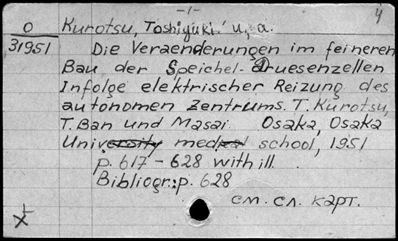 -1-
4
O
31951
Kurotsu, Toshiyuki. u. a.
Die Veraenderungen im feineren
Bau der Speichel-Druesenzellen
Infolge elektrischer Reizung des
autonomen Zentrums. T. Kurotsu,
T. Ban und Masai. Osaka, Osaka
University medical school, 1951
p. 617-628 with ill.
Bibliogr: p. 628
см. сл. карт.